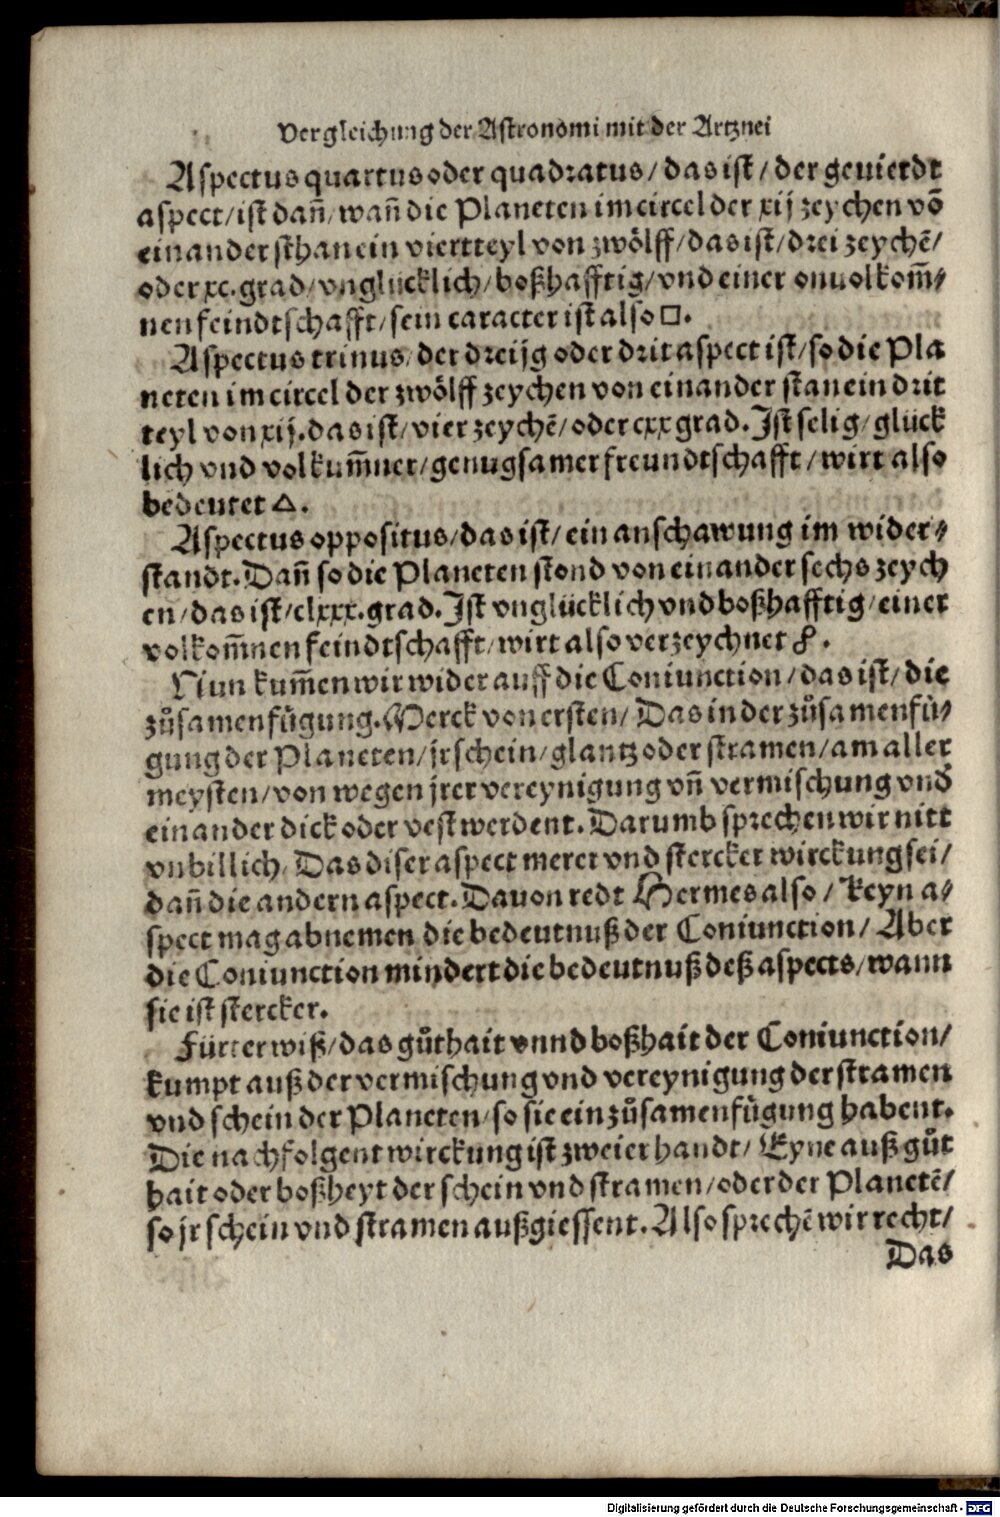 Vergleichung der Astronomi mit der Artznei
Aspectus quartus oder quadratus / das ist / der geuierdt
aspect / ist dañ / wañ die Planeten im circel der xij zeychen võ
einander sthan ein viertteyl von zwölff / das ist / drei zeychẽ /
oder xc. grad / vnglücklich / boßhafftig / vnd einer onuolkom̃⸗
nen feindtschafft / sein caracter ist also □.
Aspectus trinus / der dreijg oder drit aspect ist / so die Pla
neten im circel der zwölff zeychen von einander stan ein drit
teyl von xij. das ist / vier zeychẽ / oder cxx grad. Ist selig / glück
lich vnd volkum̃ner / genugsamer freundtschafft / wirt also
bedeutet △.
Aspectus oppositus / das ist / ein anschawung im wider⸗
standt. Dañ so die Planeten stond von einander sechs zeych
en / das ist / clxxx. grad. Ist vnglücklich vnd boßhafftig / einer
volkom̃nen feindtschafft / wirt also verzeychnet ☍.
Nun kum̃en wir wider auff die Coniunction / das ist / die
zůsamenfügung. Merck von ersten / Das in der zůsamenfü⸗
gung der Planeten / jr schein / glantz oder stramen / am aller
meysten / von wegen jrer vereynigung vñ vermischung vnd
einander dick oder vest werdent. Darumb sprechen wir nitt
vnbillich / Das diser aspect meret vnd stercker wirckung sei /
dañ die andern aspect. Dauon redt Hermes also / Keyn a⸗
spect mag abnemen die bedeutnuß der Coniunction / Aber
die Coniunction mindert die bedeutnuß deß aspects / wann
sie ist stercker.
Fürter wiß / das gůthait vnnd boßhait der Coniunction /
kumpt auß der vermischung vnd vereynigung der stramen
vnd schein der Planeten / so sie ein zůsamenfügung habent.
Die nachfolgent wirckung ist zweier handt / Eyne auß gůt
hait oder boßheyt der schein vnd stramen / oder der Planetẽ /
so jr schein vnd stramen außgiessent. Also sprechẽ wir recht /
Das
Digitalisierung gefördert durch die Deutsche Forschungsgemeinschaft - DFG